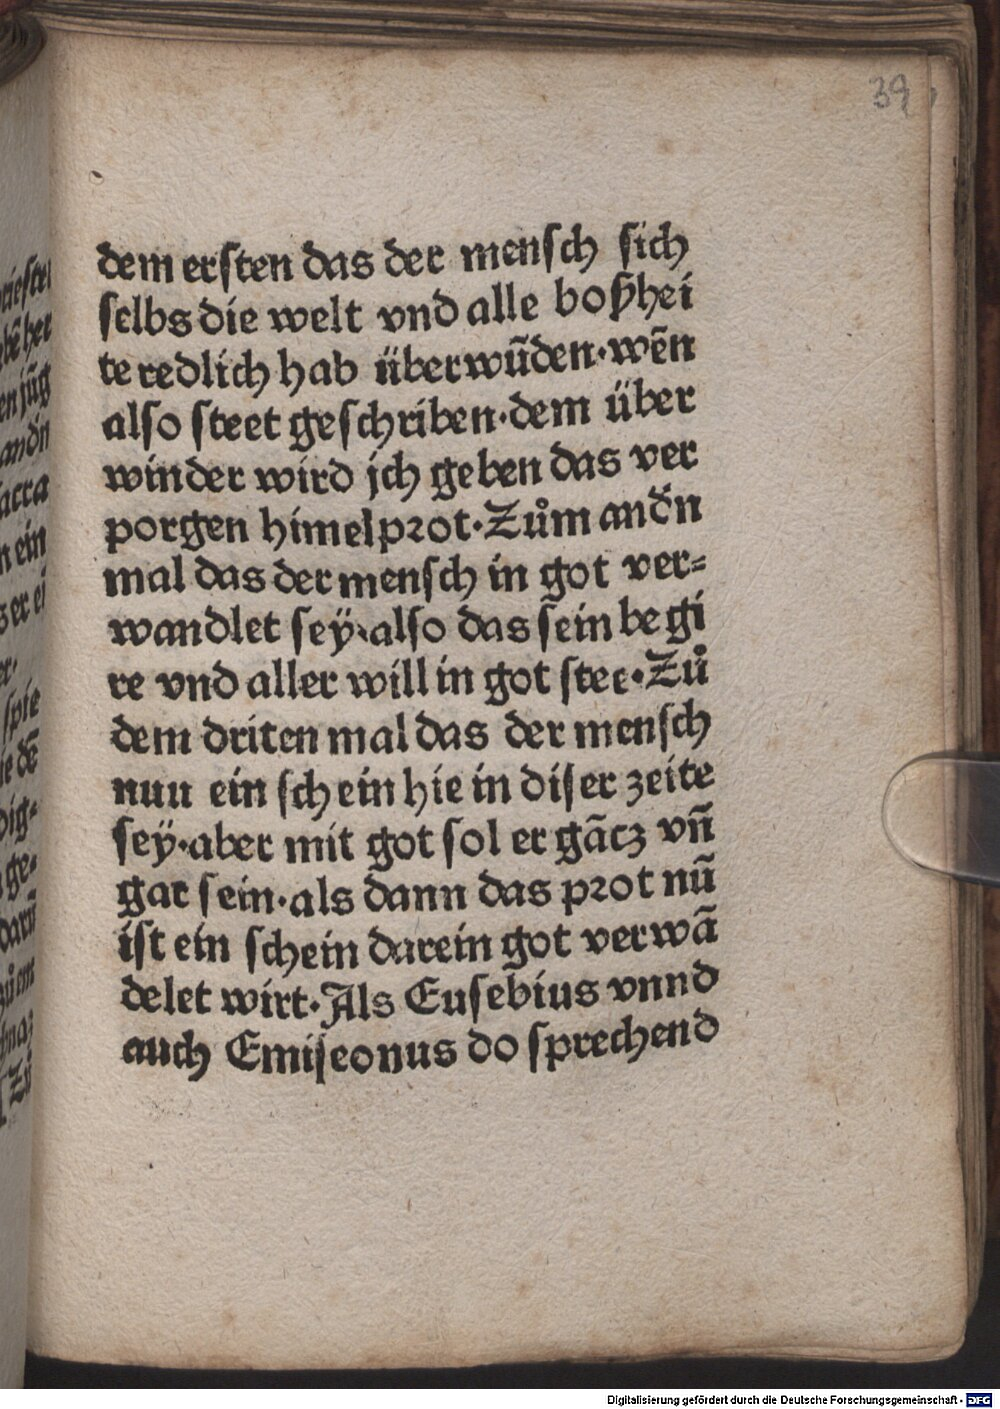 39
dem ersten das der mensch sich
selbs die welt vnd alle boßhei
te redlich hab überwũden·wẽn
also steet geschriben·dem über
winder wird jch geben das ver
porgen himelprot·Zům andñ
mal das der mensch in got ver⸗
wandlet seÿ·also das sein begi
re vnd aller will in got stee·Zů
dem driten mal das der mensch
nun ein schein hie in diser zeite
seÿ·aber mit got sol er gãcz vñ
gar sein·als dann das prot nũ
ist ein schein darein got verwã
delet wirt·Als Eusebius vnnd
auch Emiseonus do sprechend
Digitalisierung gefördert durch die Deutsche Forschungsgemeinschaft - DFG